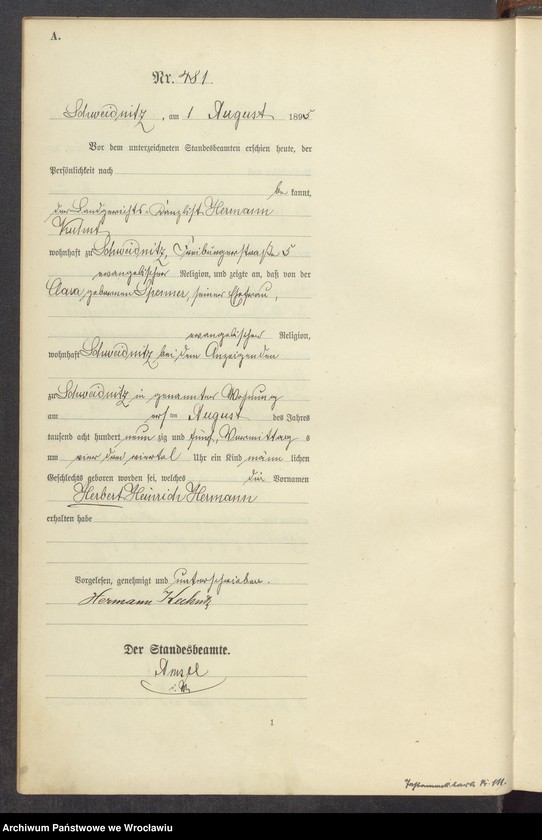 A.
Nr. 481.
Schweidnitz, am 1 August 1895
Vor dem unterzeichneten Standesbeamten erschien heute, der
Persönlichkeit nach
be kannt,
der Landgerichts-Kanzlist Hermann
wohnhaft zu Schweidnitz, 5
evangelischer Religion, und zeigte an, daß von der
Clara geborenen seiner Ehefrau,
evangelischer Religion,
wohnhaft Schweidnitz bei dem Anzeigenden
zu Schweidnitz in genannter Wohnung
am ersten August des Jahres
tausend acht hundert neun zig und fünf, Vormittag s
um vier drei viertel Uhr ein Kind männ lichen
Geschlechts geboren worden sei, welches die Vornamen
Herbert Heinrich Hermann
erhalten habe
Vorgelesen, genehmigt und unterschrieben.
Hermann
Der Standesbeamte.
1
Archiwum Państwowe we Wrocławiu